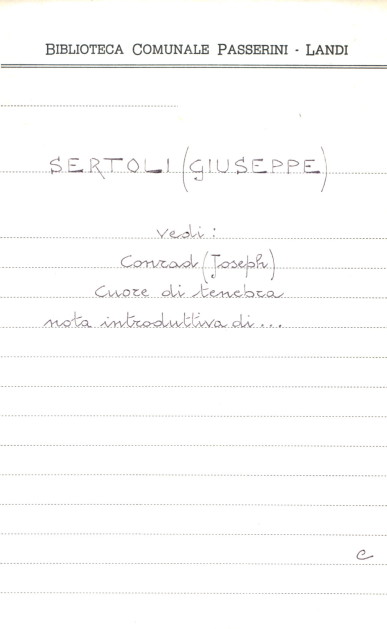 BIBLIOTECA COMUNALE PASSERINI - LANDI
SERTOLI (GIUSEPPE)
vedi:
Conrad (Joseph)
Cuore di tenebra
nota introduttiva di...
c